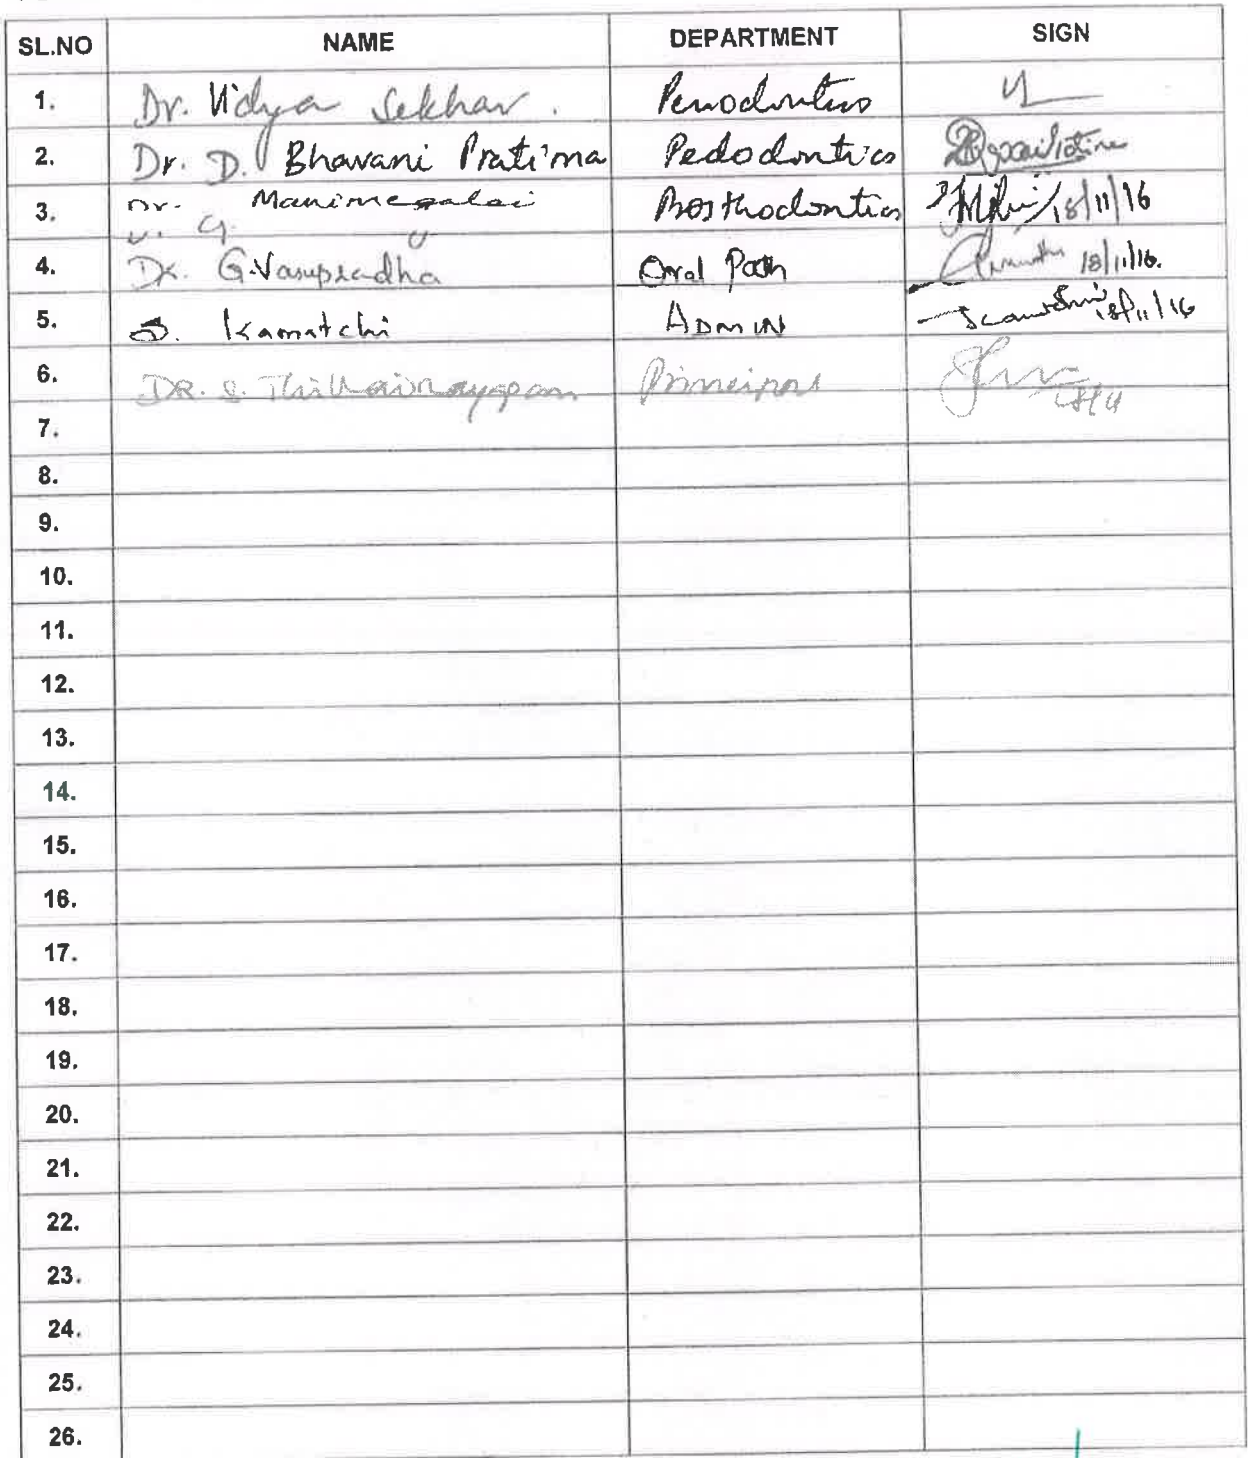 SL.NO NAME DEPARTMENT SIGN
1. Dr. Vidya Sekhar. Periodontics
2. Dr. D. Bhavani Pratima Pedodontics
3. Dr. Manimegalai Prosthodontics 18/11/16
V. G.
4. Dr. G.Vasupradha Oral Path 18/11/16.
5. Kamatchi ADMIN 18/11/16
6. DR. S. Thillainayagam Principal
7.
8.
9.
10.
11.
12.
13.
14.
15.
16.
17.
18.
19.
20.
21.
22.
23.
24.
25.
26.